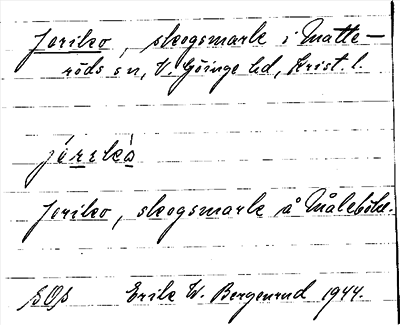 Joriko, skogsmark i Matte-
röds sn, V. Göinge hd, Krist. l.
Joriko, skogsmark å Måleböke.
SOs Erik W. Bergenrud 1944.